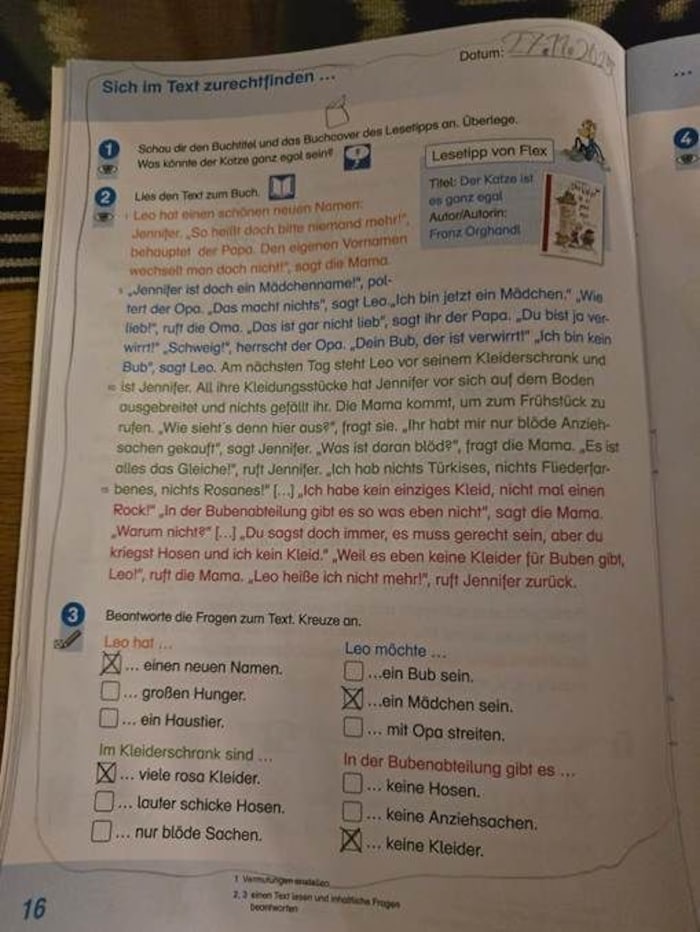 Datum: 27.11.2025
Sich im Text zurechtfinden ...
1 Schau dir den Buchtitel und das Buchcover des Lesetipps an. Überlege.
Was könnte der Katze ganz egal sein?
Lesetipp von Flex
Titel: Der Katze ist
es ganz egal
Autor/Autorin:
Franz Orghandl
2 Lies den Text zum Buch.
1 Leo hat einen schönen neuen Namen:
Jennifer. „So heißt doch bitte niemand mehr!",
behauptet der Papa. Den eigenen Vornamen
wechselt man doch nicht!", sagt die Mama.
5 „Jennifer ist doch ein Mädchenname!", pol-
tert der Opa. „Das macht nichts", sagt Leo. „Ich bin jetzt ein Mädchen." „Wie
lieb!", ruft die Oma. „Das ist gar nicht lieb", sagt ihr der Papa. „Du bist ja ver-
wirrt!" „Schweig!", herrscht der Opa. „Dein Bub, der ist verwirrt!" „Ich bin kein
Bub", sagt Leo. Am nächsten Tag steht Leo vor seinem Kleiderschrank und
10 ist Jennifer. All ihre Kleidungsstücke hat Jennifer vor sich auf dem Boden
ausgebreitet und nichts gefällt ihr. Die Mama kommt, um zum Frühstück zu
rufen. „Wie sieht's denn hier aus?", fragt sie. „Ihr habt mir nur blöde Anzieh-
sachen gekauft", sagt Jennifer. „Was ist daran blöd?", fragt die Mama. „Es ist
alles das Gleiche!", ruft Jennifer. „Ich hab nichts Türkises, nichts Fliederfar-
15 benes, nichts Rosanes!" [...] „Ich habe kein einziges Kleid, nicht mal einen
Rock!" „In der Bubenabteilung gibt es so was eben nicht", sagt die Mama.
„Warum nicht?" [...] „Du sagst doch immer, es muss gerecht sein, aber du
kriegst Hosen und ich kein Kleid." „Weil es eben keine Kleider für Buben gibt,
Leo!", ruft die Mama. „Leo heiße ich nicht mehr!", ruft Jennifer zurück.
3 Beantworte die Fragen zum Text. Kreuze an.
Leo hat ...
... einen neuen Namen.
... großen Hunger.
... ein Haustier.
Leo möchte ...
...ein Bub sein.
...ein Mädchen sein.
... mit Opa streiten.
Im Kleiderschrank sind ...
... viele rosa Kleider.
... lauter schicke Hosen.
... nur blöde Sachen.
In der Bubenabteilung gibt es ...
... keine Hosen.
... keine Anziehsachen.
... keine Kleider.
1 Vermutungen anstellen
2, 3 einen Text lesen und inhaltliche Fragen
beantworten
16
...
4